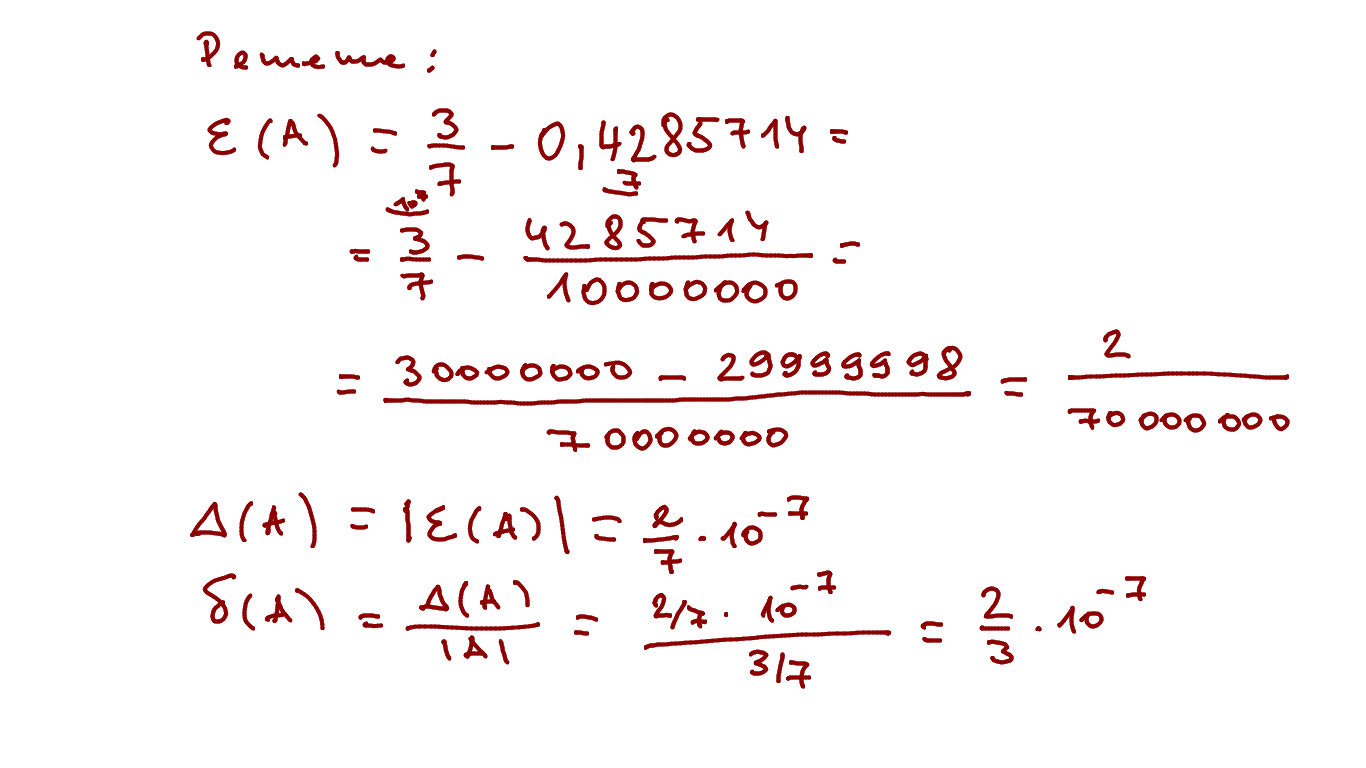 Решение:
ε(A) = 3/7 - 0,4285714 =
= 3/7 (10⁷ - 4285714/10000000 (7 =
= (30000000 - 29999998)/70000000 = 2/70000000
Δ(A) = |ε(A)| = 2/7 · 10⁻⁷
δ(A) = Δ(A)/|A| = (2/7 · 10⁻⁷)/(3/7) = 2/3 · 10⁻⁷